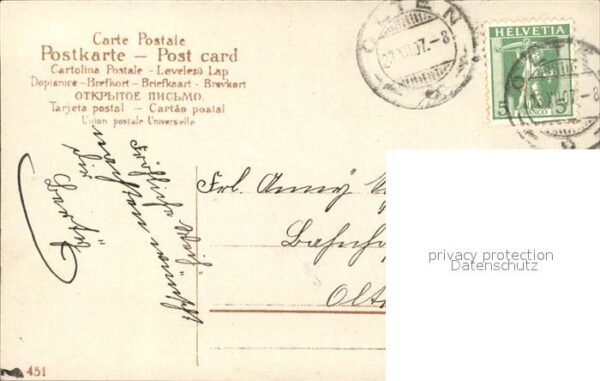 Carte Postale
Postkarte – Post card
Cartolina Postale - Levelező Lap
Dopisnice - Brefkort - Briefkaart - Brevkort
ОТКРЫТОЕ ПИСЬМО.
Tarjeta postal - Cartão postal
Union postale Universelle
OLTEN
27.XII.07.-8
HELVETIA
5 5
FRANCO
Fröhliche Weih
nachten wünscht
dir
Berta
Frl. Anny
Bahnho
Olt
privacy protection
Datenschutz
451